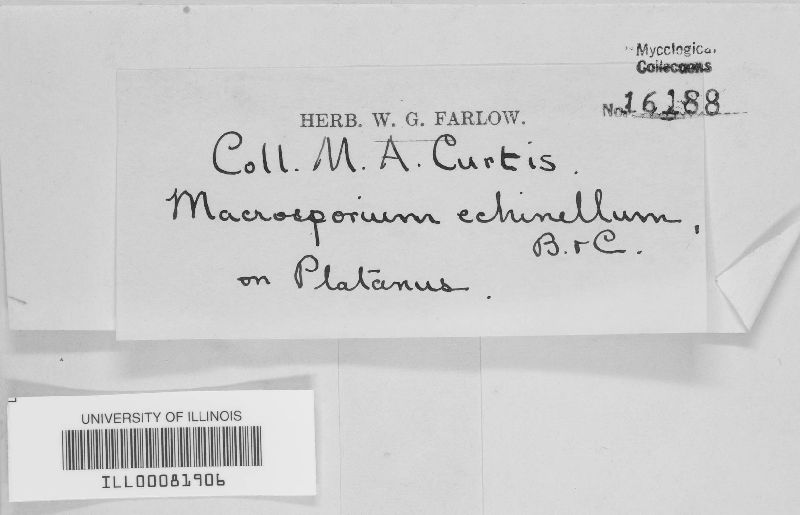 Mycological
Collections
No. 16188
HERB. W. G. FARLOW.
Coll. M. A. Curtis.
Macrosporium echinellum,
B. & C.
on Platanus.
UNIVERSITY OF ILLINOIS
ILL00081906